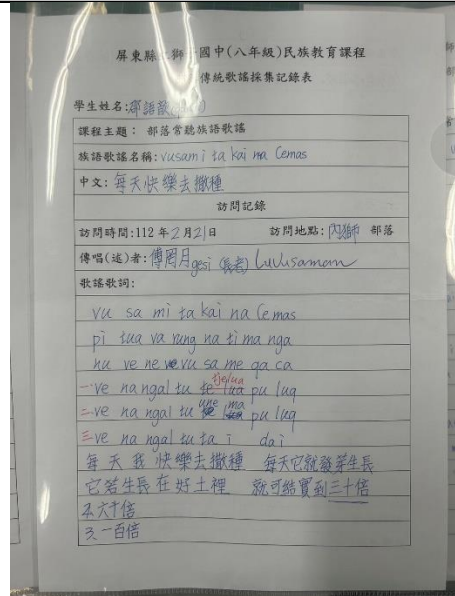 屏東縣 獅 國中(八年級)民族教育課程
傳統歌謠採集記錄表
學生姓名:
課程主題: 部落常聽族語歌謠
族語歌謠名稱: vusami ta kai na Cemas
中文: 每天快樂去撒種
訪問記錄
訪問時間:112年2月21日 訪問地點: 內獅 部落
傳唱(述)者: 傅罔月gesi (長者) Luvusaman
歌謠歌詞:
vu sa mi ta kai na Cemas
pi tua va rung na ti ma nga
nu ve ne vu sa me qa ca
一.ve na ngal tu tjelua pu luq
二.ve na ngal tu une ma pu luq
三.ve na ngal tu ta i dai
每天我快樂去撒種 每天它就發芽生長
它若生長在好土裡 就可結實到三十倍
2.六十倍
3.一百倍